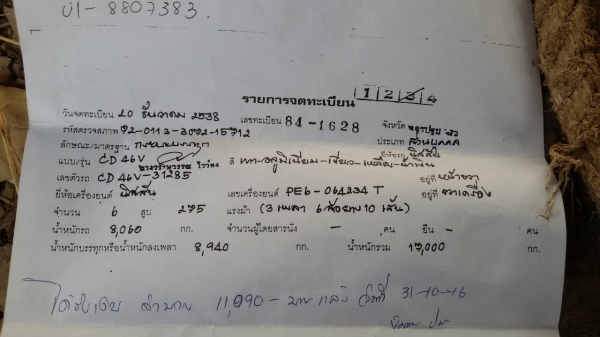 01-8807383
1 2 3 4
รายการจดทะเบียน
วันจดทะเบียน 20 ธันวาคม 2538 เลขทะเบียน 84-1628 จังหวัด นครปฐม
รหัสตรวจสภาพ 72-0113-3072-15712 ประเภท ส่วนบุคคล
ลักษณะ/มาตรฐาน ยี่ห้อรถ นิสสัน
แบบ/รุ่น CD46V สี เทา-อลูมิเนียม-เขียว-เหลือง-น้ำเงิน
เลขตัวรถ CD46V-31285 อยู่ที่ หน้าขวา
ยี่ห้อเครื่องยนต์ นิสสัน เลขเครื่องยนต์ PE6-064234T อยู่ที่ ขวาเครื่อง
จำนวน 6 สูบ 275 แรงม้า (3 เพลา 6 ล้อยาง 10 เส้น)
น้ำหนักรถ 8,060 กก. จำนวนผู้โดยสารนั่ง - คน ยืน - คน
น้ำหนักบรรทุกหรือน้ำหนักลงเพลา 8,940 กก. น้ำหนักรวม 17,000 กก.
ได้รับเงิน 11,990- บาท แล้ว วันที่ 31-10-16